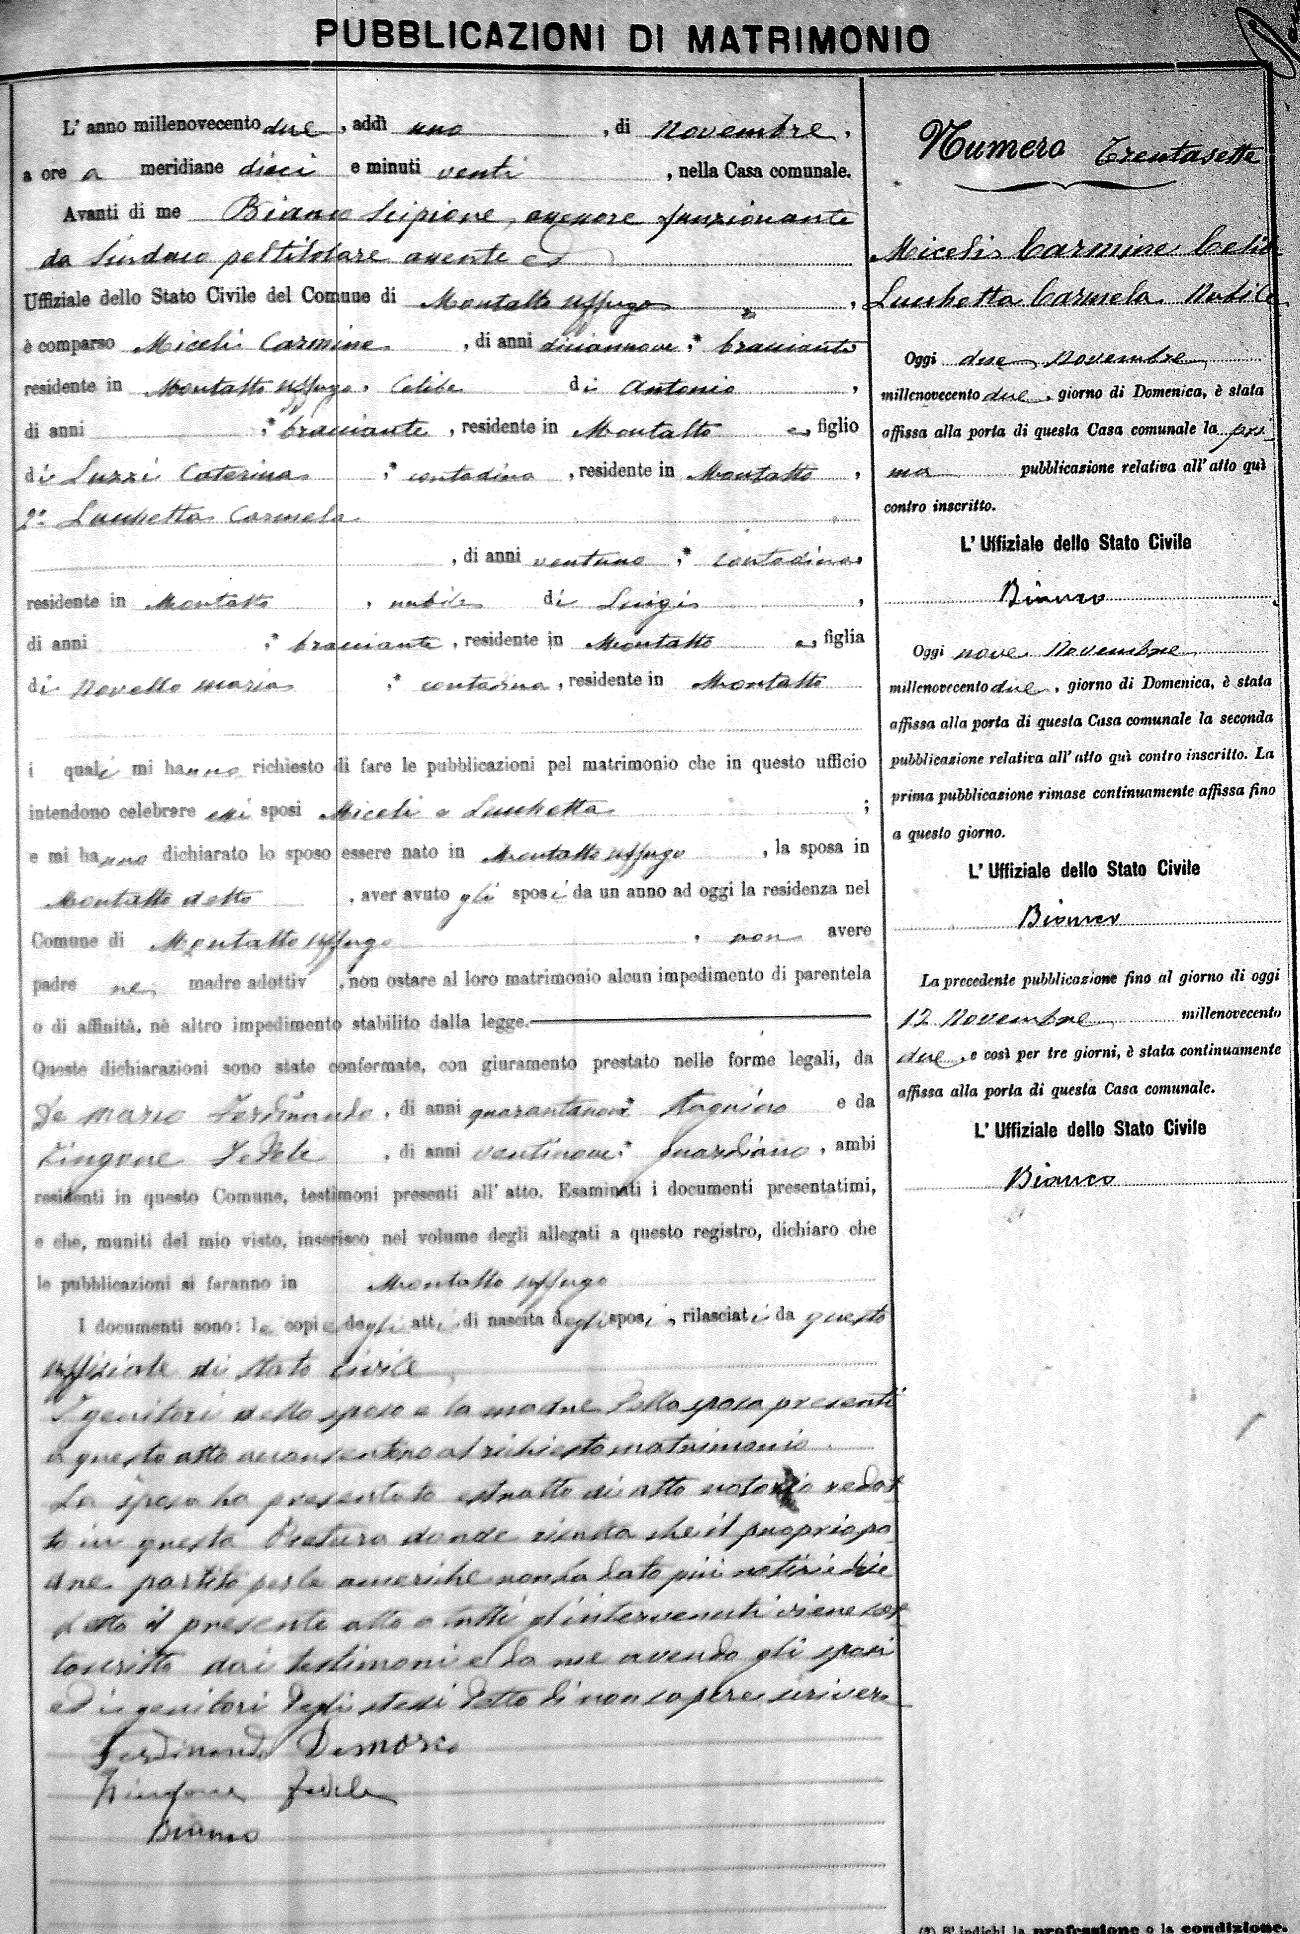 PUBBLICAZIONI DI MATRIMONIO
L' anno millenovecento due, addì uno, di Novembre,
a ore a meridiane dieci e minuti venti, nella Casa comunale.
Avanti di me Bianco Scipione, assessore funzionante
da Sindaco pel titolare assente ed
Uffiziale dello Stato Civile del Comune di Montalto Uffugo,
è comparso Miceli Carmine, di anni diciannove, * bracciante
residente in Montalto Uffugo, Celibe di Antonio,
di anni , * bracciante, residente in Montalto e, figlio
di Luzzi Caterina , * contadina, residente in Montalto,
2° Lucchetta Carmela
, di anni ventuno , * contadina
residente in Montalto, nubile di Luigi,
di anni , * bracciante, residente in Montalto e, figlia
di Novello Maria , * contadina, residente in Montalto
i quali mi hanno richiesto di fare le pubblicazioni pel matrimonio che in questo ufficio
intendono celebrare essi sposi Miceli e Lucchetta ;
e mi hanno dichiarato lo sposo essere nato in Montalto Uffugo, la sposa in
Montalto detto, aver avuto gli sposi da un anno ad oggi la residenza nel
Comune di Montalto Uffugo, non avere
padre nè madre adottiv , non ostare al loro matrimonio alcun impedimento di parentela
o di affinità, nè altro impedimento stabilito dalla legge.
Queste dichiarazioni sono state confermate, con giuramento prestato nelle forme legali, da
De Marco Ferdinando, di anni quarantanove * stagnino e da
Zingone Fedele, di anni ventinove, * guardiano, ambi
residenti in questo Comune, testimoni presenti all' atto. Esaminati i documenti presentatimi,
e che, muniti del mio visto, inserisco nel volume degli allegati a questo registro, dichiaro che
le pubblicazioni si faranno in Montalto Uffugo
I documenti sono: le copie degli atti di nascita degli sposi, rilasciati da questo
uffiziale di stato civile
I genitori dello sposo e la madre della sposa presenti
a questo atto acconsentono al richiesto matrimonio
La sposa ha presentato estratto di atto notorio redat
to in questa Pretura donde risulta che il proprio pa
dre partito per le americhe non ha dato più notizie di se
Letto il presente atto a tutti gl'intervenuti viene sot
toscritto dai testimoni e da me avendo gli sposi
ed i genitori degli stessi detto di non sapere scrivere
Ferdinando Demarco
Zingone Fedele
Bianco
Numero Trentasette
Miceli Carmine Celibe
Lucchetta Carmela Nubile
Oggi due Novembre
millenovecento due, giorno di Domenica, è stata
affissa alla porta di questa Casa comunale la pri
ma pubblicazione relativa all' atto quì
contro inscritto.
L' Uffiziale dello Stato Civile
Bianco
Oggi nove Novembre
millenovecento due, giorno di Domenica, è stata
affissa alla porta di questa Casa comunale la seconda
pubblicazione relativa all' atto quì contro inscritto. La
prima pubblicazione rimase continuamente affissa fino
a questo giorno.
L' Uffiziale dello Stato Civile
Bianco
La precedente pubblicazione fino al giorno di oggi
12 Novembre millenovecento
due, e così per tre giorni, è stata continuamente
affissa alla porta di questa Casa comunale.
L' Uffiziale dello Stato Civile
Bianco
(*) S' indichi la professione o la condizione.